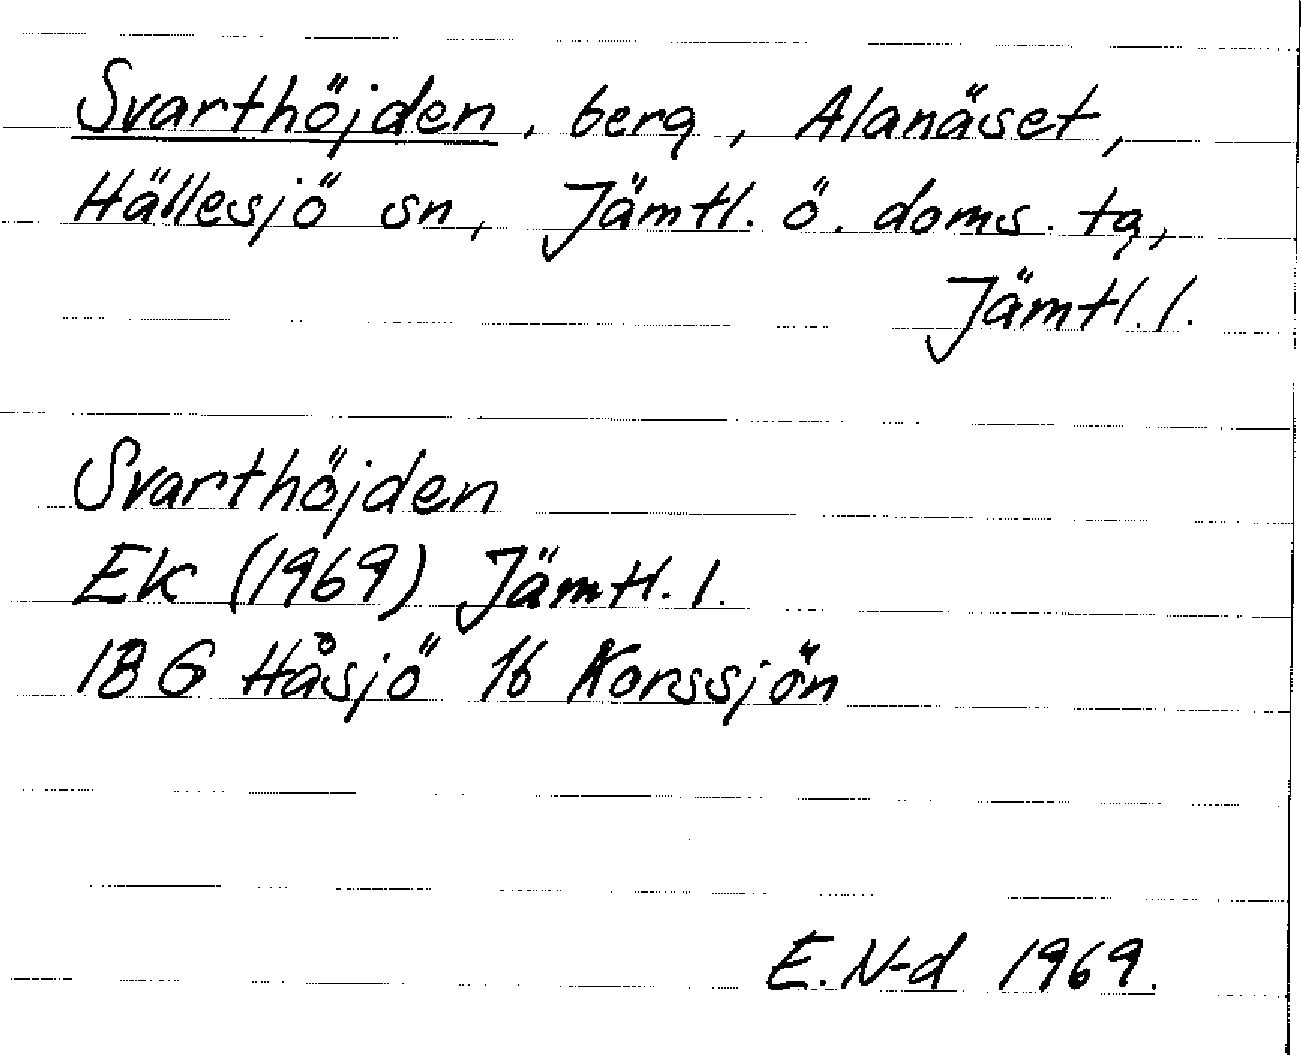 Svarthöjden, berg, Alanäset,
Hällesjö sn, Jämtl. ö. doms. tg,
Jämtl. l.
Svarthöjden
Ek (1969) Jämtl. l.
18 G Håsjö 1b Korssjön
E. N-d 1969.